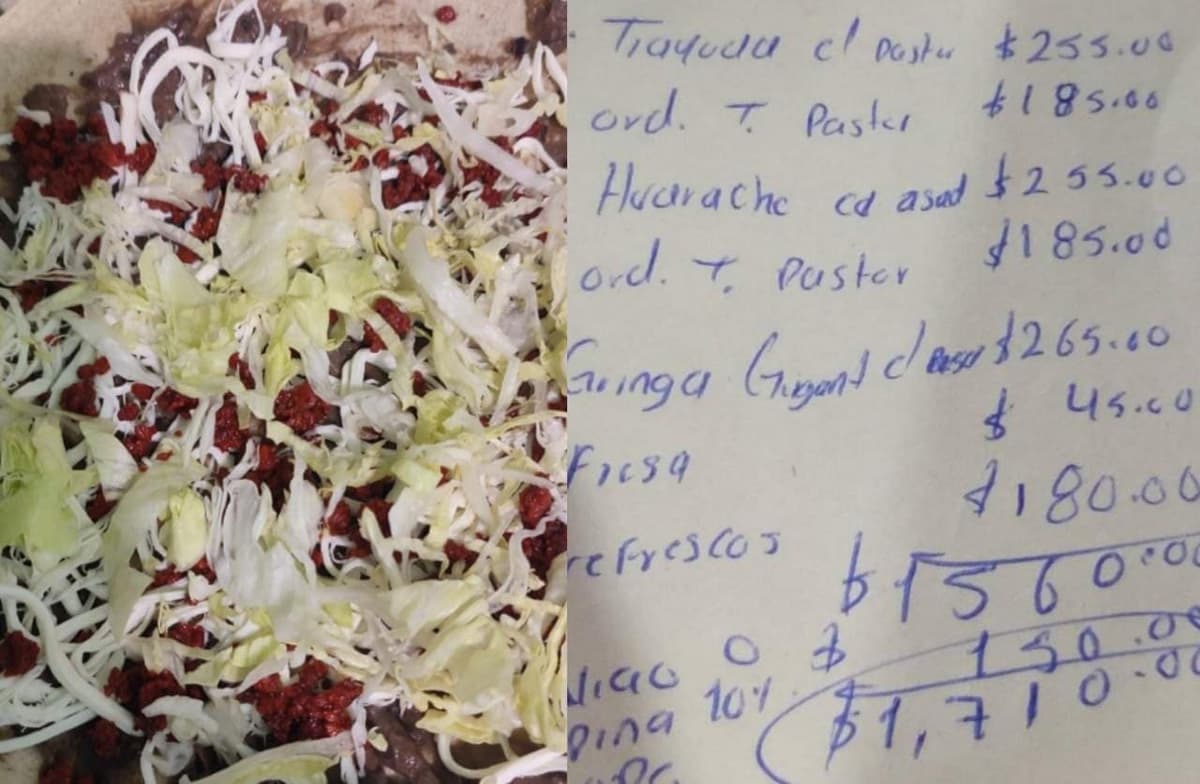 Tlayuda c/ Pastor $255.00
ord. T. Pastor $185.00
Huarache cd asad $255.00
ord. T. Pastor $185.00
Gringa Gigant c/ $265.00
Fresa $ 45.00
refrescos $180.00
$1560.00
10% $ 150.00
$1,710.00